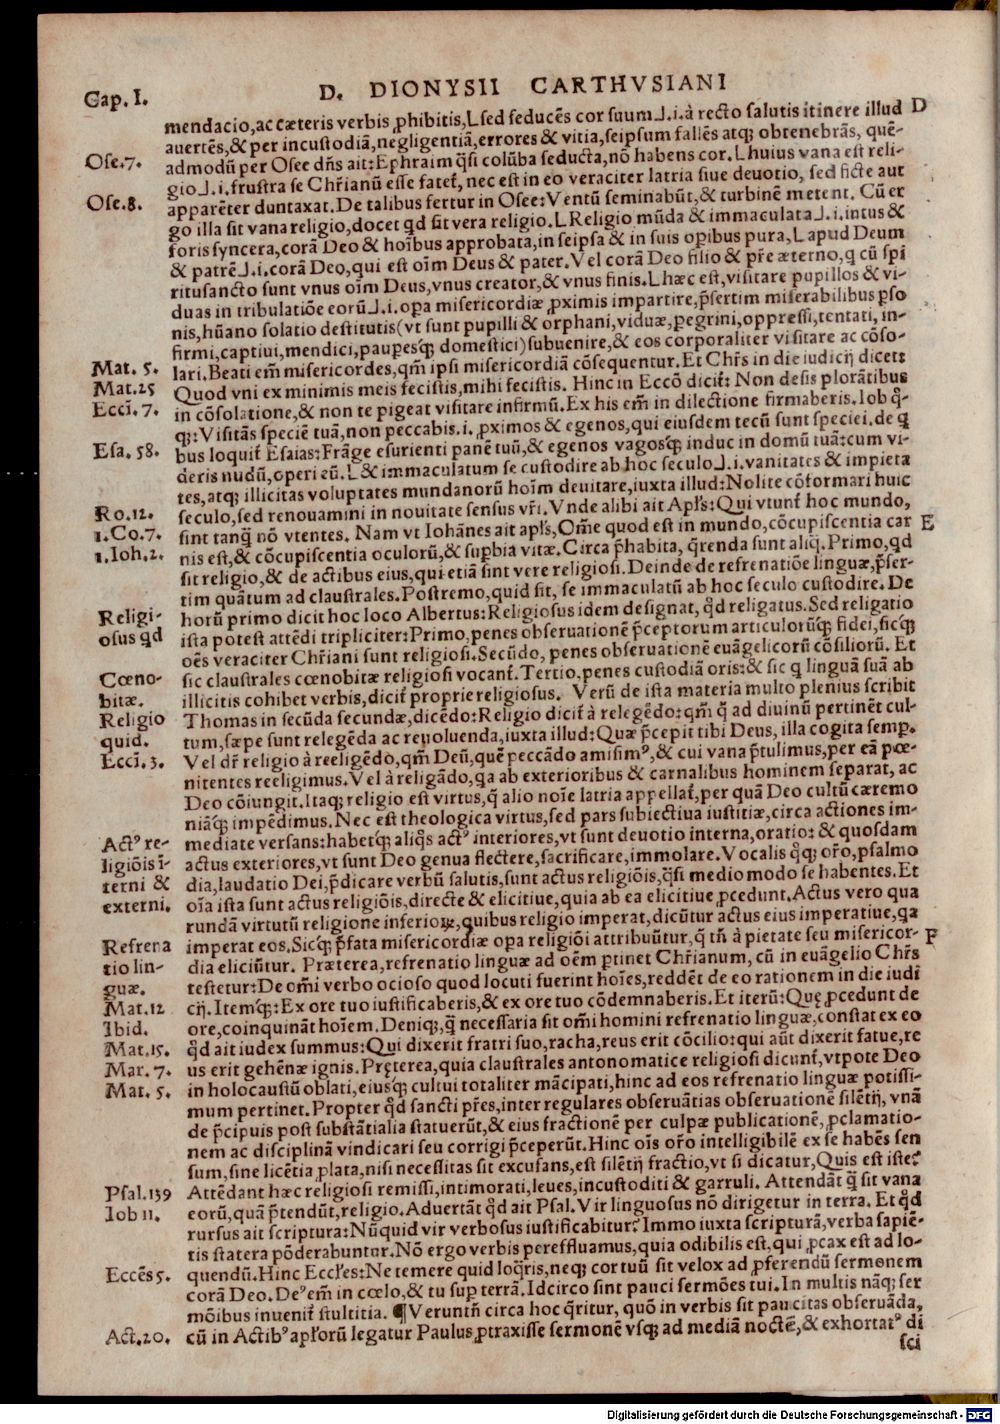 Cap. I.
D. DIONYSII CARTHVSIANI
mendacio, ac cæteris verbis ꝓhibitis, L sed seducẽs cor suum ⅃ .i. à recto salutis itinere illud D
auertẽs, & per incustodiã, negligentiã, errores & vitia, seipsum fallẽs atq; obtenebrãs, quẽ-
Ose. 7. admodũ per Osee dñs ait: Ephraim q̃si colũba seducta, nõ habens cor. L huius vana est reli-
gio ⅃ .i. frustra se Chr̃ianũ esse fatet᷑, nec est in eo veraciter latria siue deuotio, sed ficte aut
Ose. 8. apparẽter duntaxat. De talibus fertur in Osee: Ventũ seminabũt, & turbinẽ metent. Cũ er
go illa sit vana religio, docet qd sit vera religio. L Religio mũda & immaculata ⅃ .i. intus &
foris syncera, corã Deo & hoĩbus approbata, in seipsa & in suis opibus pura, L apud Deum
& patrẽ ⅃ .i. corã Deo, qui est oĩm Deus & pater. Vel corã Deo filio & pr̃e æterno, q cũ spĩ
ritusancto sunt vnus oĩm Deus, vnus creator, & vnus finis. L hæc est, visitare pupillos & vi-
duas in tribulatiõe eorũ ⅃ .i. opa misericordiæ ꝓximis impartire, p̃sertim miserabilibus pso
nis, hũano solatio destitutis (vt sunt pupilli & orphani, viduæ, pegrini, oppressi, tentati, in-
firmi, captiui, mendici, paupesq; domestici) subuenire, & eos corporaliter visitare ac cõso-
Mat. 5. lari. Beati em̃ misericordes, qm̃ ipsi misericordiã cõsequentur. Et Chr̃s in die iudicij dicet:
Mat. 25 Quod vni ex minimis meis fecistis, mihi fecistis. Hinc in Eccõ dicit᷑: Non desis plorãtibus
Ecci. 7. in cõsolatione, & non te pigeat visitare infirmũ. Ex his em̃ in dilectione firmaberis. Iob q̃-
q;: Visitãs speciẽ tuã, non peccabis .i. ꝓximos & egenos, qui eiusdem tecũ sunt speciei. de q
Esa. 58. bus loquit᷑ Esaias: Frãge esurienti panẽ tuũ, & egenos vagosq; induc in domũ tuã: cum vi-
deris nudũ, operi eũ. L & immaculatum se custodire ab hoc seculo ⅃ .i. vanitates & impieta
tes, atq; illicitas voluptates mundanorũ hoĩm deuitare, iuxta illud: Nolite cõformari huic
Ro. 12. seculo, sed renouamini in nouitate sensus vr̃i. Vnde alibi ait Apl̃s: Qui vtunt᷑ hoc mundo,
1. Co. 7. sint tanq̃ nõ vtentes. Nam vt Iohãnes ait apl̃s, Om̃e quod est in mundo, cõcupiscentia car E
1. Ioh. 2. nis est, & cõcupiscentia oculorũ, & supbia vitæ. Circa p̃habita, q̃renda sunt aliq̃. Primo, qd
sit religio, & de actibus eius, qui etiã sint vere religiosi. Deinde de refrenatiõe linguæ, p̃ser-
tim quãtum ad claustrales. Postremo, quid sit, se immaculatũ ab hoc seculo custodire. De
Religi- horũ primo dicit hoc loco Albertus: Religiosus idem designat, q̃d religatus. Sed religatio
osus qd ista potest attẽdi tripliciter: Primo, penes obseruationẽ p̃ceptorum articulorũq; fidei, sicq;
oẽs veraciter Chr̃iani sunt religiosi. Secũdo, penes obseruationẽ euãgelicorũ cõsiliorũ. Et
Cœno- sic claustrales cœnobitæ religiosi vocant᷑. Tertio, penes custodiã oris: & sic q linguã suã ab
bitæ. illicitis cohibet verbis, dicit᷑ proprie religiosus. Verũ de ista materia multo plenius scribit
Religio Thomas in secũda secundæ, dicẽdo: Religio dicit᷑ à relegẽdo: qm̃ q̃ ad diuinũ pertinẽt cul-
quid. tum, sæpe sunt relegẽda ac reuoluenda, iuxta illud: Quæ p̃cepit tibi Deus, illa cogita semp.
Ecci. 3. Vel dr̃ religio à reeligẽdo, qm̃ Deũ, quẽ peccãdo amisimꝰ, & cui vana p̃tulimus, per eã pœ-
nitentes reeligimus. Vel à religãdo, qa ab exterioribus & carnalibus hominem separat, ac
Deo cõiungit. Itaq; religio est virtus, q̃ alio noĩe latria appellat᷑, per quã Deo cultũ cæremo
niãq; impẽdimus. Nec est theologica virtus, sed pars subiectiua iustitiæ, circa actiones im-
Actꝰ re- mediate versans: habetq; aliq̃s actꝰ interiores, vt sunt deuotio interna, oratio: & quosdam
ligiõis ĩ- actus exteriores, vt sunt Deo genua flectere, sacrificare, immolare. Vocalis q̃q; or̃o, psalmo
terni & dia, laudatio Dei, p̃dicare verbũ salutis, sunt actus religiõis, q̃si medio modo se habentes. Et
externi. oĩa ista sunt actus religiõis, directe & elicitiue, quia ab ea elicitiue ꝓcedunt. Actus vero qua
rundã virtutũ religione inferioꝝ, quibus religio imperat, dicũtur actus eius imperatiue, qa
Refrena imperat eos. Sicq; p̃fata misericordiæ opa religiõi attribuũtur, q̃ tñ à pietate seu misericor- F
tio lin- dia eliciũtur. Præterea, refrenatio linguæ ad oẽm ptinet Chr̃ianum, cũ in euãgelio Chr̃s
guæ. testetur: De om̃i verbo ocioso quod locuti fuerint hoĩes, reddẽt de eo rationem in die iudi
Mat. 12 cij. Itemq;: Ex ore tuo iustificaberis, & ex ore tuo cõdemnaberis. Et iterũ: Quę ꝓcedunt de
Ibid. ore, coinquinãt hoĩem. Deniq;, q̃ necessaria sit om̃i homini refrenatio linguæ, constat ex eo
Mat. 15. q̃d ait iudex summus: Qui dixerit fratri suo, racha, reus erit cõcilio: qui aũt dixerit fatue, re
Mar. 7. us erit gehẽnæ ignis. Pręterea, quia claustrales antonomatice religiosi dicunt᷑, vtpote Deo
Mat. 5. in holocaustũ oblati, eiusq; cultui totaliter mãcipati, hinc ad eos refrenatio linguæ potissi-
mum pertinet. Propter q̃d sancti pr̃es, inter regulares obseruãtias obseruationẽ silẽtij, vnã
de p̃cipuis post substãtialia statuerũt, & eius fractionẽ per culpæ publicationẽ, ꝓclamatio-
nem ac disciplinã vindicari seu corrigi p̃ceperũt. Hinc oĩs or̃o intelligibilẽ ex se habẽs sen
sum, sine licẽtia ꝓlata, nisi necessitas sit excusans, est silẽtij fractio, vt si dicatur, Quis est iste?
Psal. 139 Attẽdant hæc religiosi remissi, intimorati, leues, incustoditi & garruli. Attendãt q̃ sit vana
Iob 11. eorũ, quã p̃tendũt, religio. Aduertãt q̃d ait Psal. Vir linguosus nõ dirigetur in terra. Et q̃d
rursus ait scriptura: Nũquid vir verbosus iustificabitur? Immo iuxta scripturã, verba sapiẽ-
tis statera põderabuntur. Nõ ergo verbis pereffluamus, quia odibilis est, qui ꝓcax est ad lo-
Eccẽs 5. quendũ. Hinc Eccl̃es: Ne temere quid loq̃ris, neq; cor tuũ sit velox ad ꝓferendũ sermonem
corã Deo. Deꝰ em̃ in cœlo, & tu sup terrã. Idcirco sint pauci sermões tui. In multis nãq; ser
mõibus inuenit᷑ stultitia. ¶ Veruntñ circa hoc q̃ritur, quõ in verbis sit paucitas obseruãda,
Act. 20. cũ in Actibꝰ apl̃orũ legatur Paulus ꝓtraxisse sermonẽ vsq; ad mediã noctẽ, & exhortatꝰ di
sci
Digitalisierung gefördert durch die Deutsche Forschungsgemeinschaft - DFG